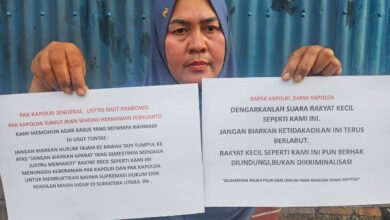 PAK KAPOLRI JENDERAL LISTYO SIGIT PRABOWO
PAK KAPOLDA SUMUT IRJEN WHISNU HERMAWAN FEBRUANTO
KAMI MEMOHON AGAR KASUS YANG MENIMPA RAHMADI
DI USUT TUNTAS :
JANGAN BIARKAN HUKUM TAJAM KE BAWAH TAPI TUMPUL KE
ATAS "JANGAN BIARKAN APARAT YANG SEMESTINYA MENJAGA
JUSTRU MENYAKITI" RAKYAT KECIL SEPERTI KAMI INI
MENUNGGU KEBERANIAN PAK KAPOLRI DAN PAK KAPOLDA
UNTUK MEMBUKTIKAN BAHWA SUPREMASI HUKUM DAN
KEADILAN MASIH HIDUP DI SUMATERA UTARA INI .
BAPAK KAPOLRI ,BAPAK KAPOLDA
DENGARKANLAH SUARA RAKYAT KECIL
SEPERTI KAMI INI.
JANGAN BIARKAN KETIDAKADILAN INI TERUS
BERLARUT.
RAKYAT KECIL SEPERTI KAMI INI PUN BERHAK
DILINDUNGI,BUKAN DIKRIMINALISASI
"SELAMATKAN WAJAH POLRI DARI OKNUM YANG MERUSAK NAMA